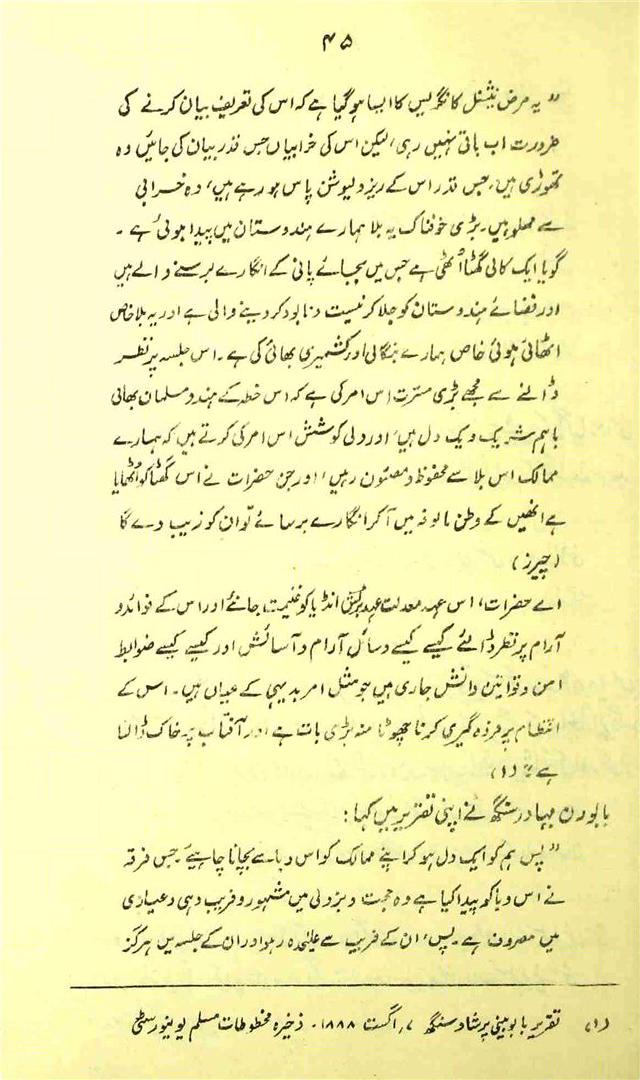 ۴۵
" یہ مرض نیشنل کانگریس کا ایسا ہوگیا ہے کہ اس کی تعریف بیان کرنے کی
ضرورت اب باقی نہیں رہی، لیکن اس کی خرابیاں جس قدر بیان کی جائیں وہ
تھوڑی ہیں، جس قدر اس کے ریزولیوشن پاس ہو رہے ہیں، وہ خرابی
سے مملو ہیں۔ بڑی خوفناک یہ بلا ہمارے ہندوستان میں پیدا ہوئی ہے ۔
گویا ایک کالی گھٹا اُٹھی ہے جس میں بجائے پانی کے انگارے برسنے والے ہیں
اور فضائے ہندوستان کو جلا کر نیست و نابود کر دینے والی ہے اور یہ بلا خاص
اٹھائی ہوئی خاص ہمارے بنگالی اور کشمیری بھائی کی ہے ۔ اس جلسہ پر نظر
ڈالنے سے مجھے بڑی مسرّت اس امر کی ہے کہ اس خطہ کے ہندو مسلمان بھائی
باہم شریک و یک دل ہیں، اور دلی کوشش اس امر کی کرتے ہیں کہ ہمارے
ممالک اس بلا سے محفوظ و مصئون رہیں، اور جن حضرات نے اس گھٹا کو اُٹھایا
ہے انھیں کے وطن مالوفہ میں آکر انگارے برسائے تو ان کو زیب دے گا
(چیرز)
اے حضرات، اس عہد معدلت عہد برٹش انڈیا کو غنیمت جانئے اور اس کے فوائد و
آرام پر نظر ڈالئے کیسے کیسے وسائل آرام و آسائش اور کیسے کیسے ضوابط
امن و قوانین دانش جاری ہیں جو مثل امر بدیہی کے عیاں ہیں ۔ اس کے
انتظام پر خردہ گیری کرنا چھوٹا منہ بڑی بات ہے اور آفتاب پر خاک ڈالنا
ہے" (۱)
بابو رن بہادر سنگھ نے اپنی تقریر میں کہا :
" پس ہم کو ایک دل ہو کر اپنے ممالک کو اس وبا سے بچانا چاہیئے۔ جس فرقہ
نے اس وبا کو پیدا کیا ہے وہ حجت و بزدلی میں مشہور و فریب دہی و عیاری
میں مصروف ہے۔ پس، ان کے فریب سے علیحدہ رہو اور ان کے جلسہ میں ہرگز
(۱) تقریر بابو بینی پرشاد سنگھ ۷/ اگست ۱۸۸۸ء۔ ذخیرہ مخطوطات مسلم یونیورسٹی